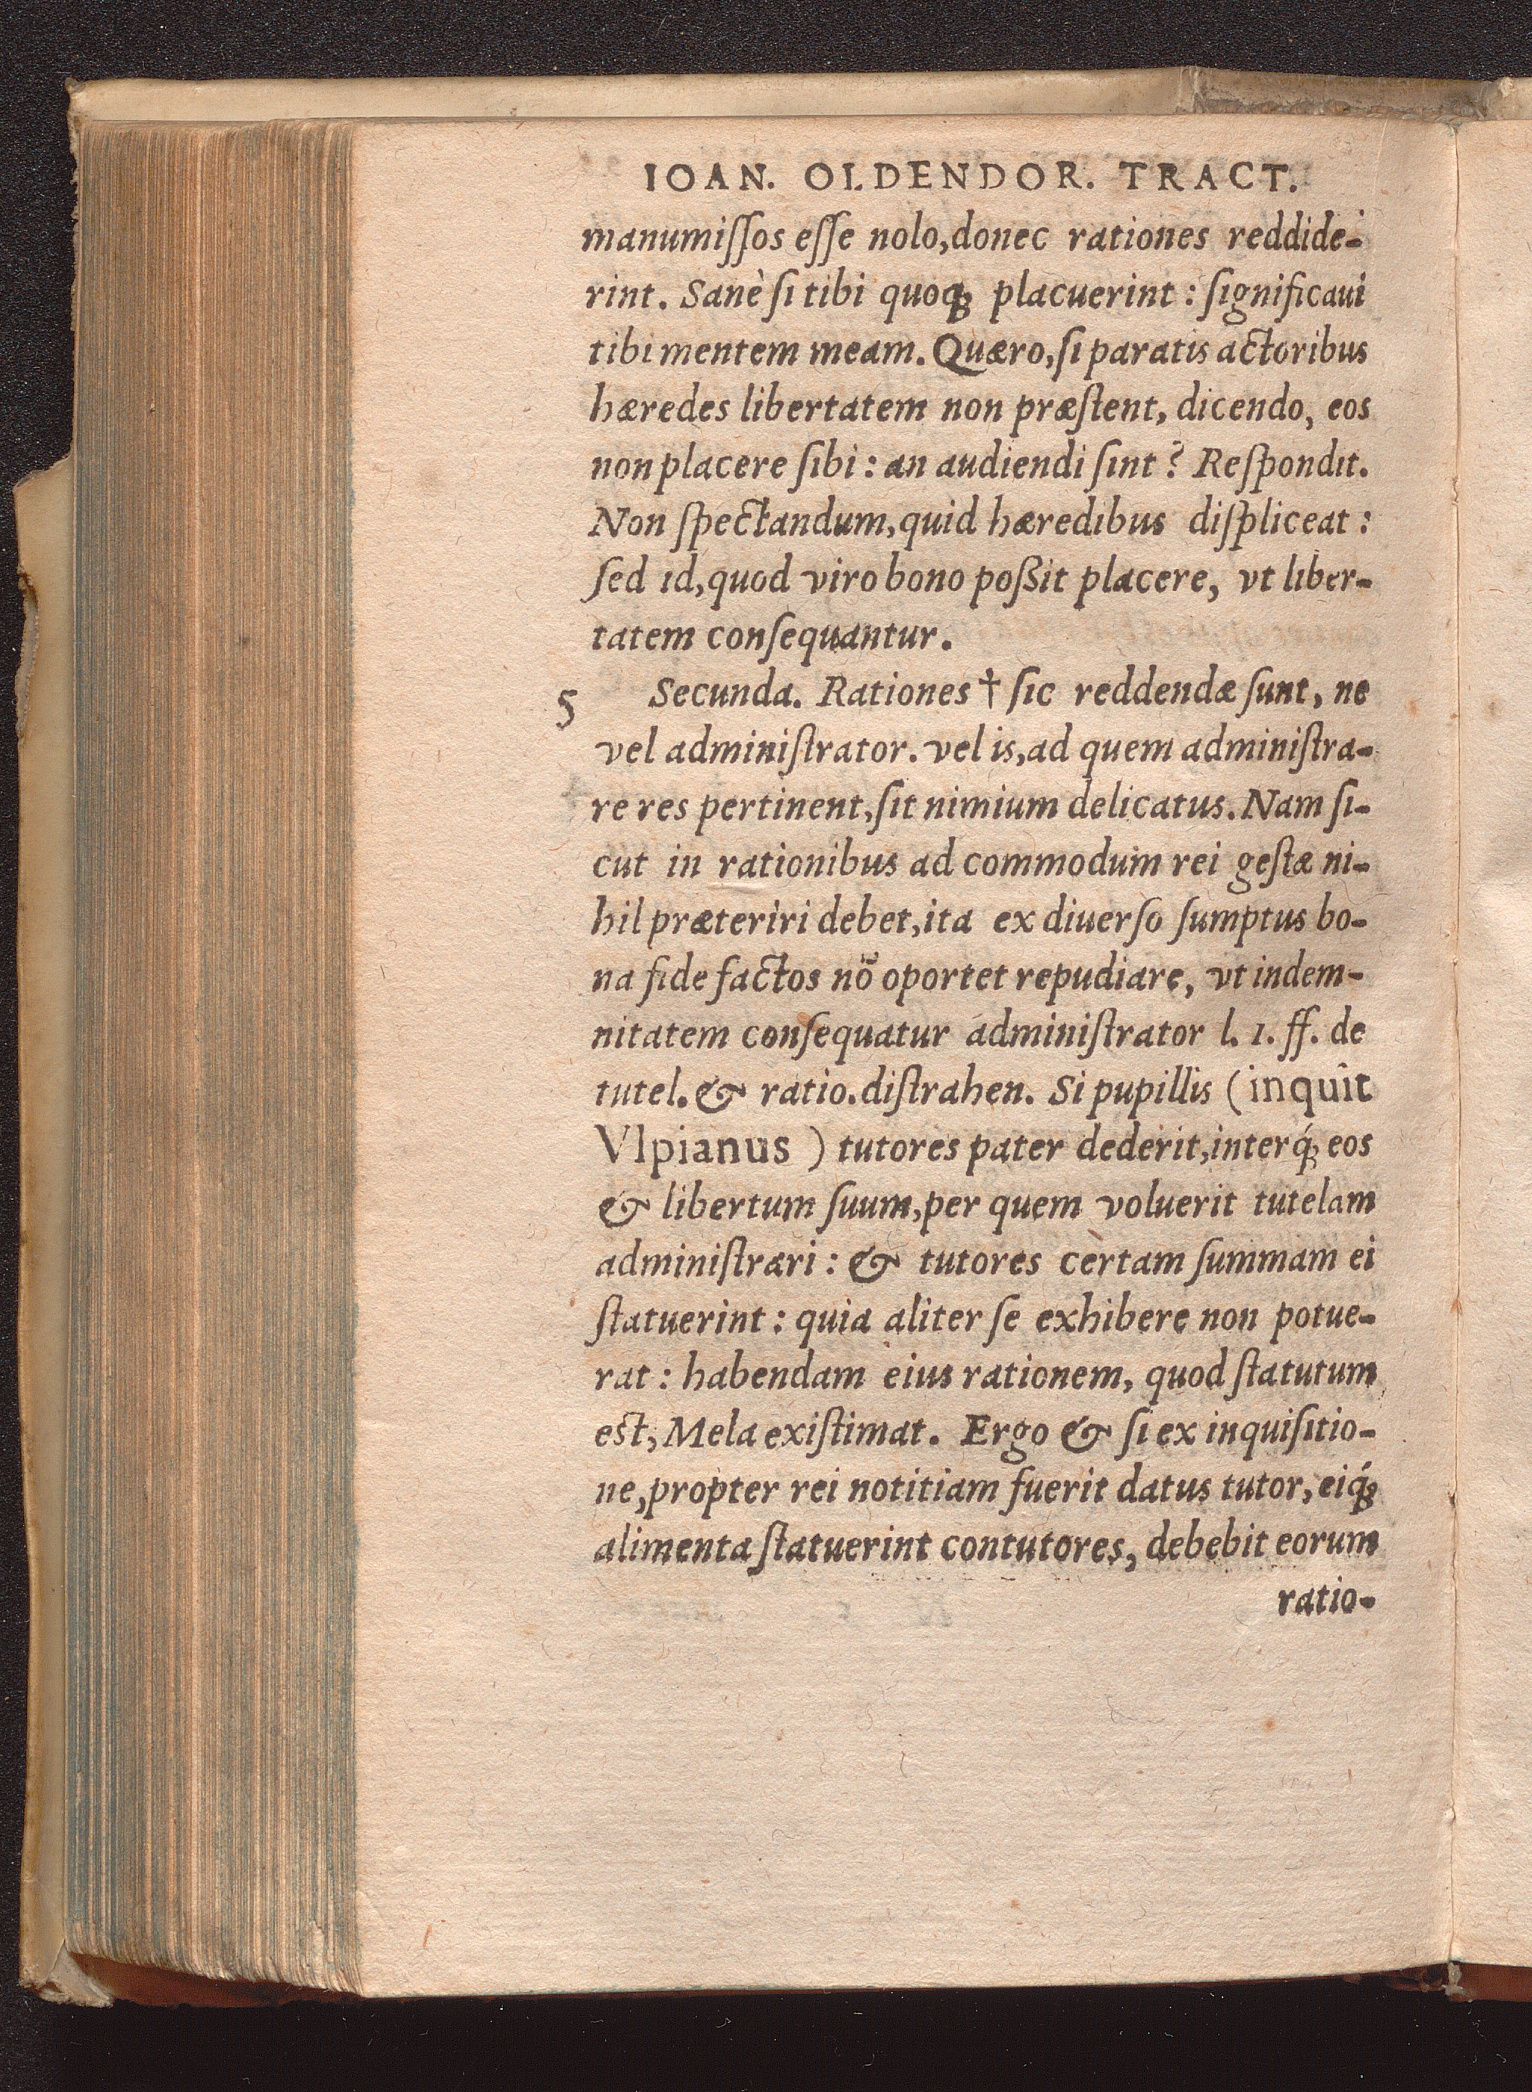 IOAN. OLDENDOR. TRACT.
manumiſſos eſſe nolo, donec rationes reddide-
rint. Sanè ſi tibi quoqꝫ placuerint : ſignificaui
tibi mentem meam. Quæro, ſi paratis actoribus
hæredes libertatem non præſtent, dicendo, eos
non placere ſibi : an audiendi ſint ? Reſpondit.
Non ſpectandum, quid hæredibus diſpliceat :
ſed id, quod viro bono poßit placere, vt liber-
tatem conſequantur.
5 Secunda. Rationes † ſic reddendæ ſunt, ne
vel adminiſtrator. vel is, ad quem adminiſtra-
re res pertinent, ſit nimium delicatus. Nam ſi-
cut in rationibus ad commodum rei geſtæ ni-
hil præteriri debet, ita ex diuerſo ſumptus bo-
na fide factos nõ oportet repudiare, vt indem-
nitatem conſequatur adminiſtrator l. 1. ff. de
tutel. & ratio. diſtrahen. Si pupillis (inquit
Vlpianus ) tutores pater dederit, interq́ꝫ eos
& libertum ſuum, per quem voluerit tutelam
adminiſtrari : & tutores certam ſummam ei
ſtatuerint : quia aliter ſe exhibere non potue-
rat : habendam eius rationem, quod ſtatutum
est, Mela exiſtimat. Ergo & ſi ex inquiſitio-
ne, propter rei notitiam fuerit datus tutor, eiq́ꝫ
alimenta ſtatuerint contutores, debebit eorum
ratio-